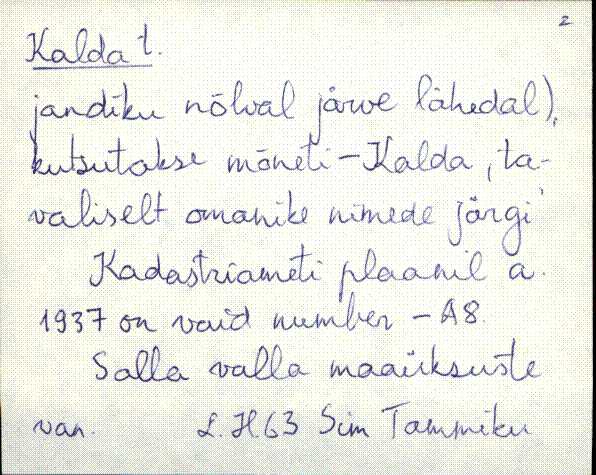 2
Kalda t.
jandiku nõlval järve lähedal),
kutsutakse mõneti - Kalda, ta-
valiselt omanike nimede järgi
Kadastriameti plaanil a.
1937 on vaid number - A8.
Salla valla maaüksuste
van. L. H.63 Sim Tammiku